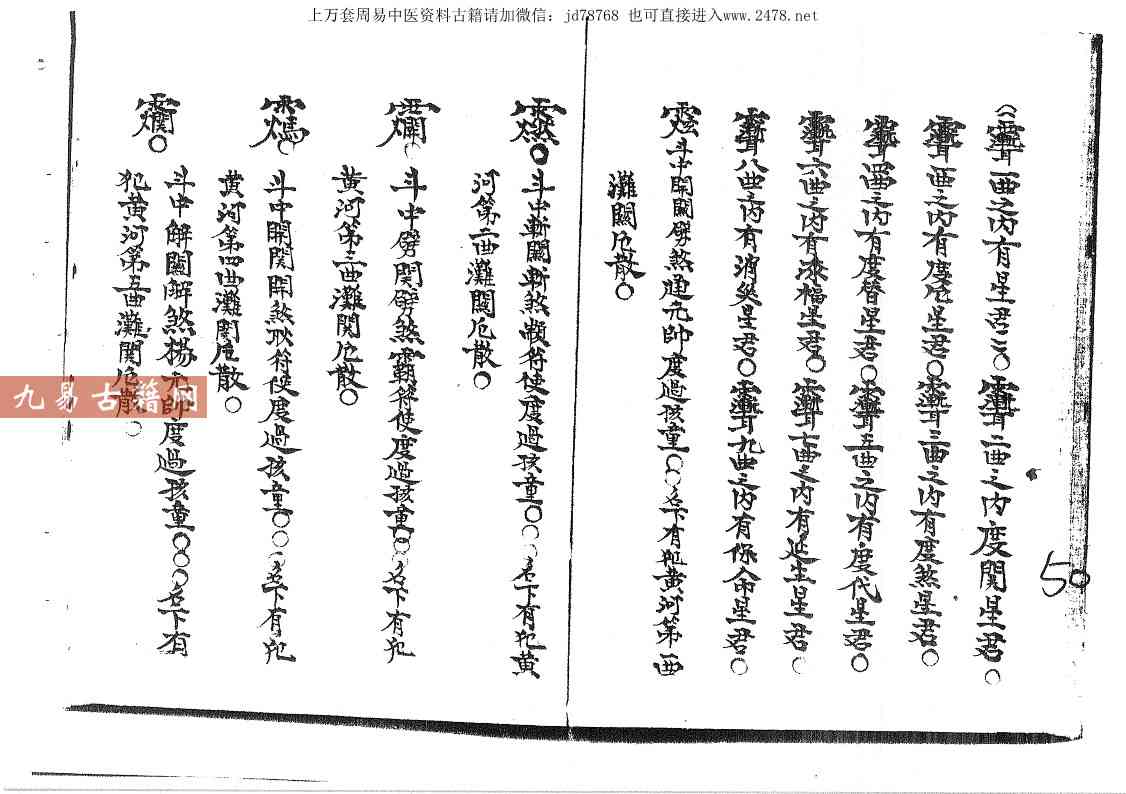 上万套周易中医资料古籍请加微信：jd78768 也可直接进入www.2478.net
曲之内有星君〇二曲之内度関星君〇
曲之内有度厄星君〇三曲之内有度煞星君〇
之内有度替星君〇五曲之内有度代星君〇
六曲之内有添福星君〇七曲之内有延生星君〇
八曲之内有消災星君〇九曲之内有保命星君〇
斗中開關劈煞元帥度過孩童〇〇名下有犯黄河第
灘關厄散〇
〇斗中斬關斬煞符使度過孩童〇〇名下有犯黄
河第二曲灘關厄散〇
〇斗中劈関劈煞霸符使度過孩童〇〇名下有犯
黄河第三曲灘関厄散〇
〇斗中開関開煞符使度過孩童〇〇名下有犯
黄河第四曲灘関厄散〇
〇斗中解關解煞楊元帥度過孩童〇〇〇名下有
犯黄河第五曲灘関厄散〇
九易古籍网
50